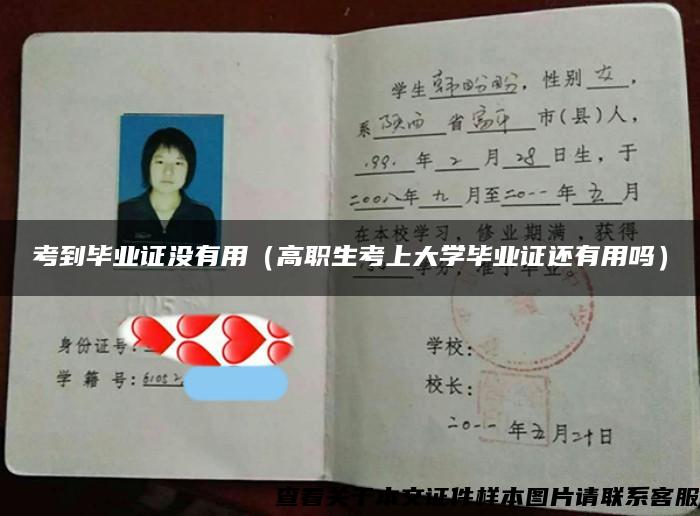 学生韩盼盼，性别女，
系陕西省富平市(县)人，
199.年2月28日生，于
二00八年九月至二0一一年五月
在本校学习，修业期满，获得
考到毕业证没有用（高职生考上大学毕业证还有用吗）
学分，准予毕业。
身份证号：
学籍号：61052
学校：
校长：
二0一一年五月二十日
查看关于本文证件样本图片请联系客服